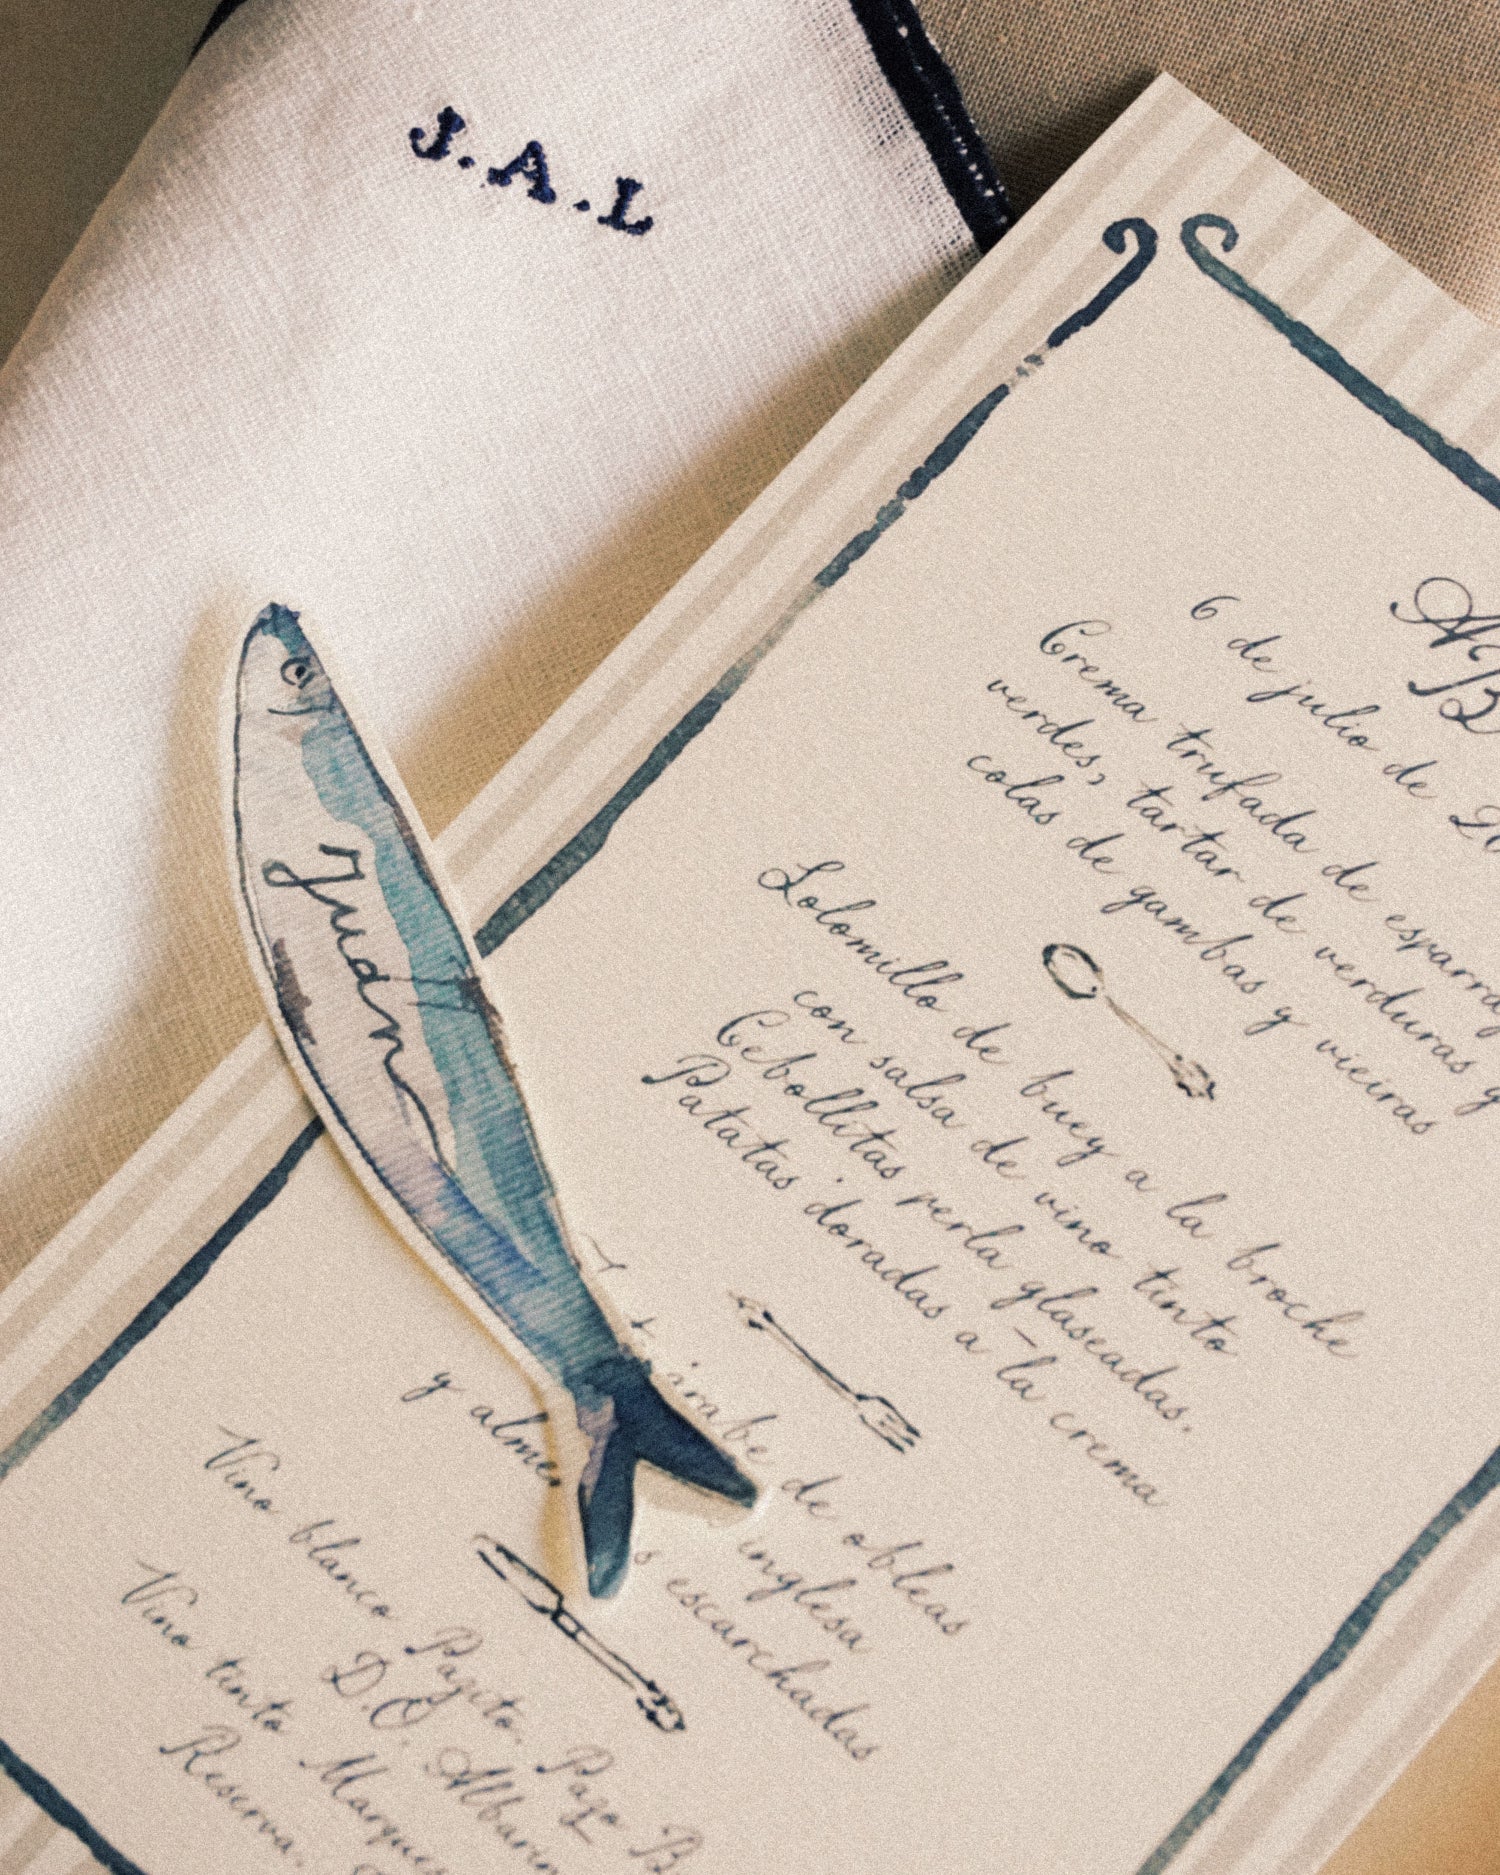 J.A.L
Juan
AB
6 de julio de
Crema trufada de
verdes, tartar de verduras y
colas de gambas y vieiras
Solomillo de buey a la broche
con salsa de vino tinto
Cebollitas perla glaseadas.
Patatas doradas a la crema
de obleas
y inglesa
escarchadas
Vino blanco Pazito. Pazo B
D.O. Albarin
Vino tinto Marques
Reserva.